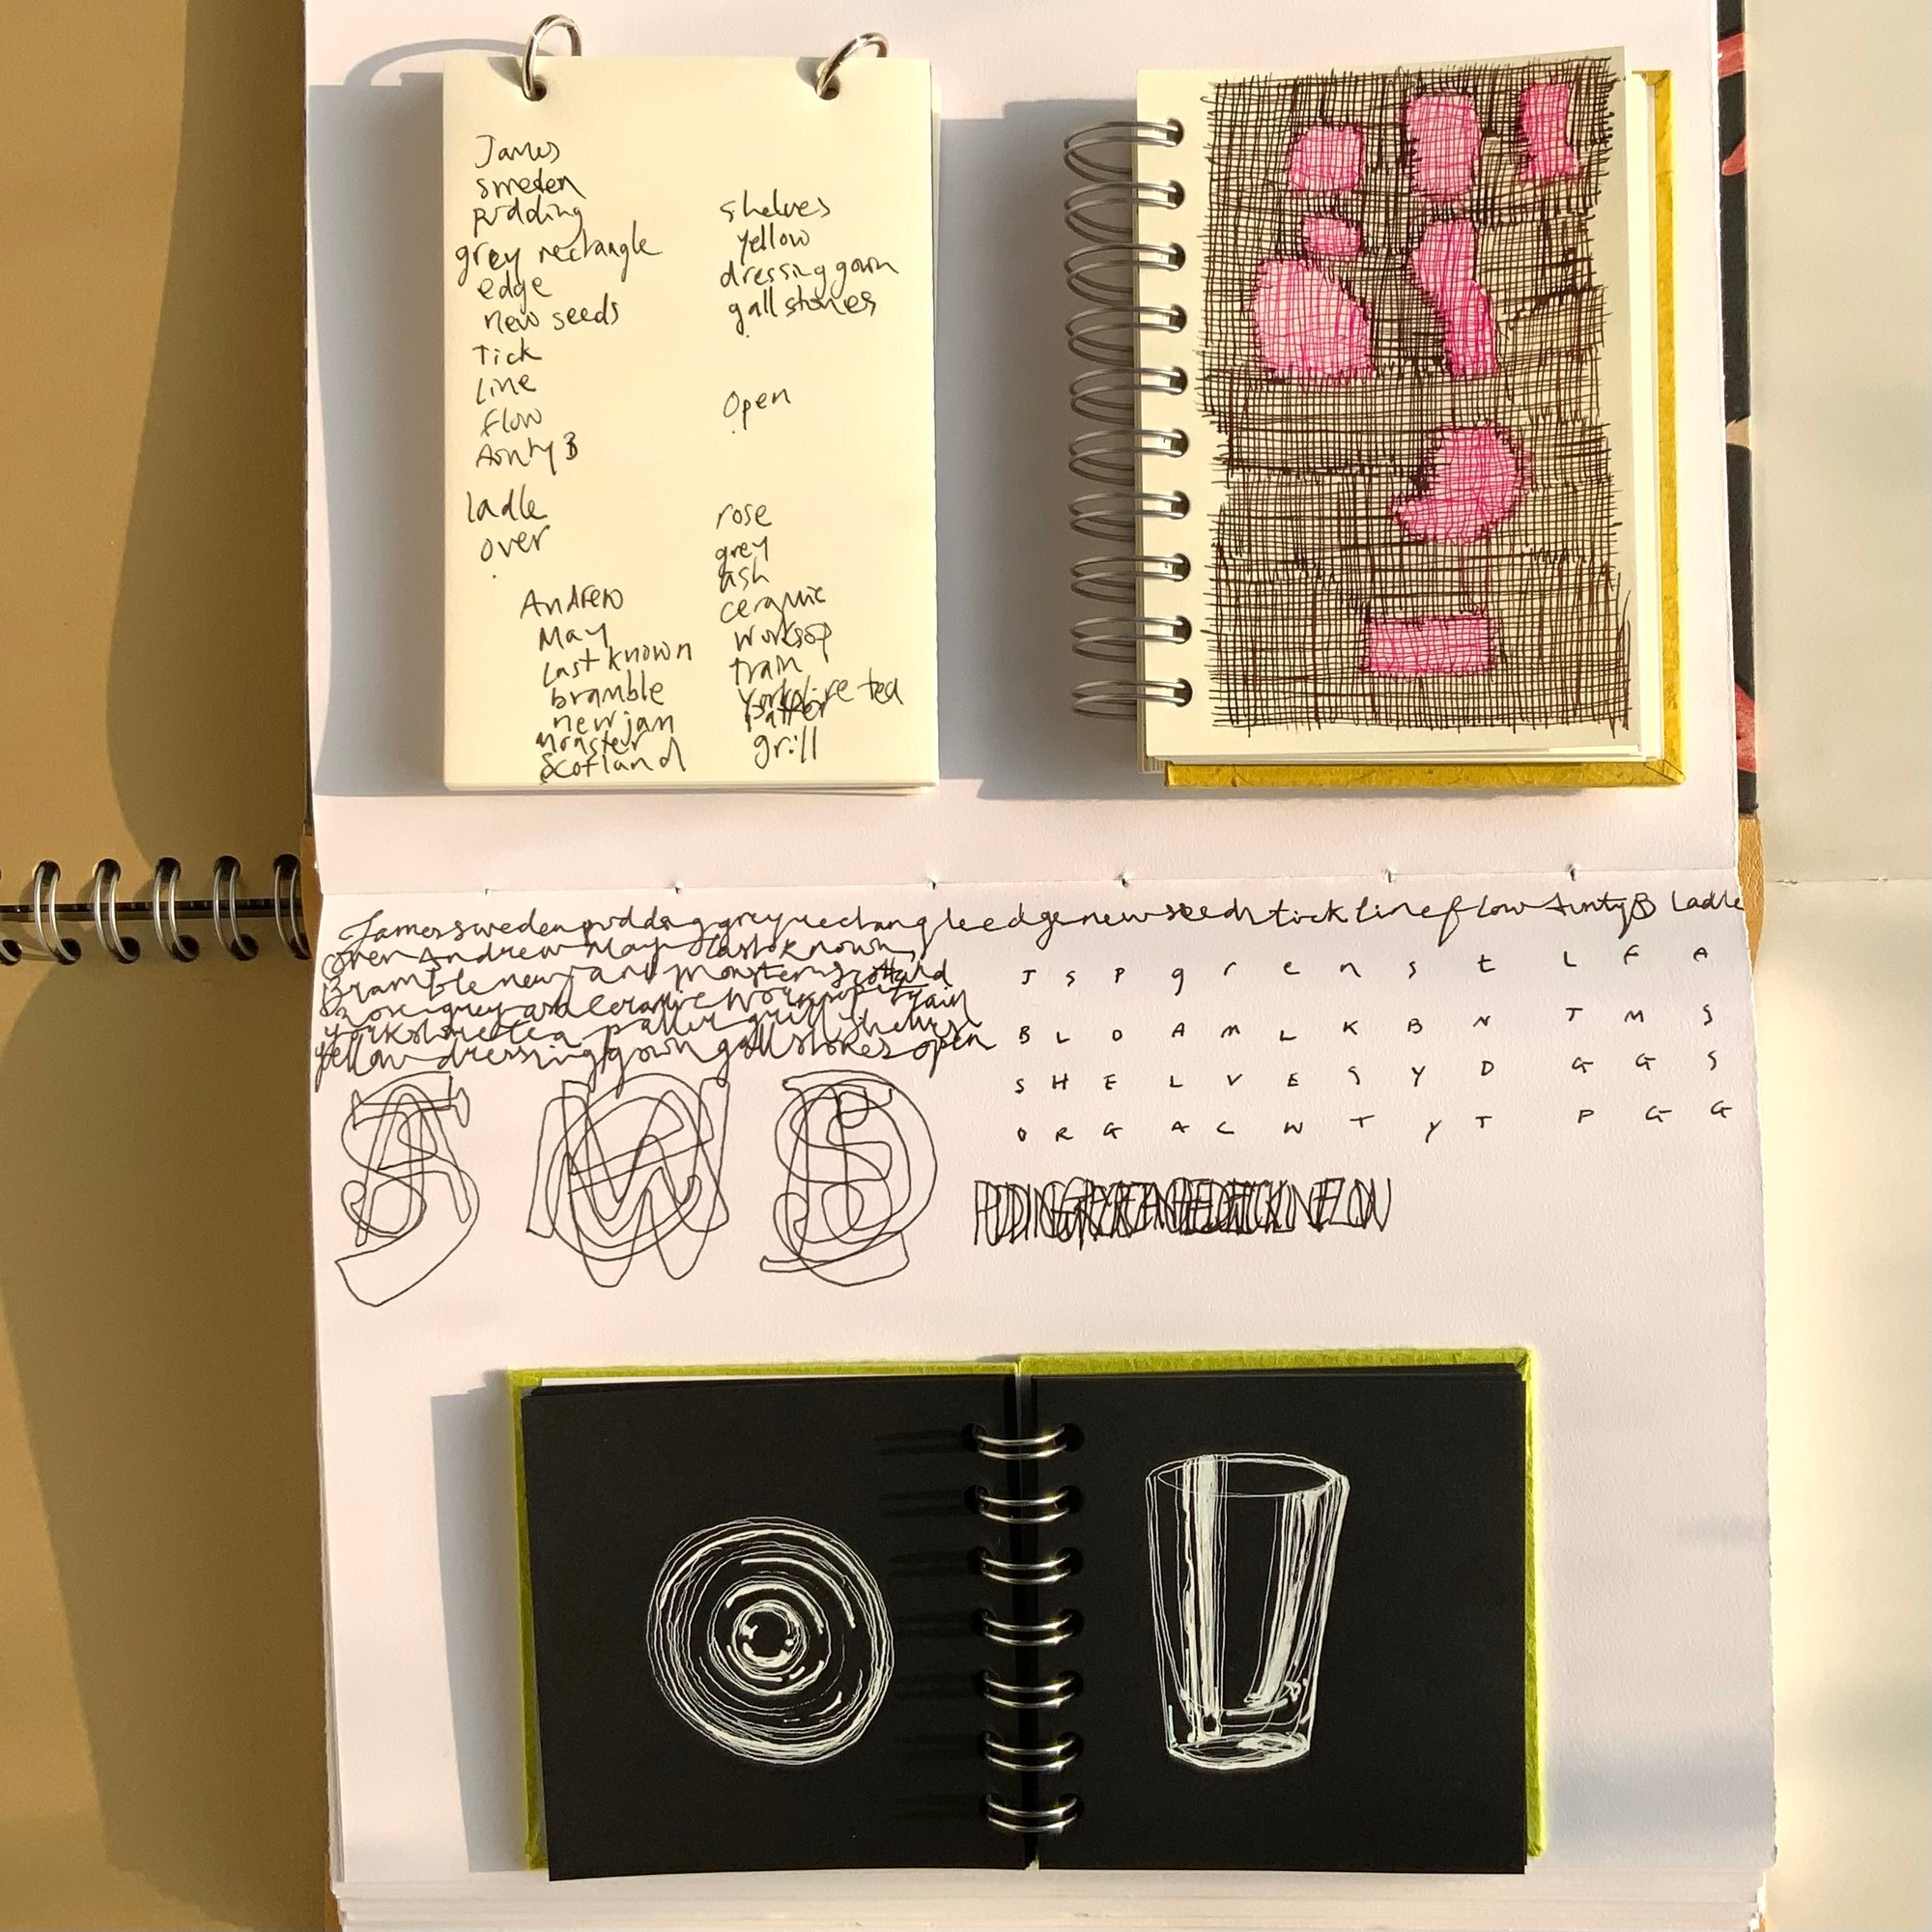 James
sweden
pudding
grey rectangle
edge
new seeds
Tick
Line
flow
Aunty B
ladle
over
Andrew
May
Last known
bramble
new jam
monster
Scotland
shelves
yellow
dressing gown
gall stones
Open
rose
grey
ash
ceramic
worksop
train
Yorkshire tea
patter
grill
James sweden pudding grey rectangle edge new seeds tick line flow Aunty B Ladle
over Andrew May last known
Bramble new jam monster scotland
rose grey ash ceramic worksop train
yorkshire tea patter grill shelves
yellow dressing gown gall stones open
J S P g r e n s t L F A
B L O A M L K B N T M S
S H E L V E S Y D G G S
O R G A C W T Y T P G G